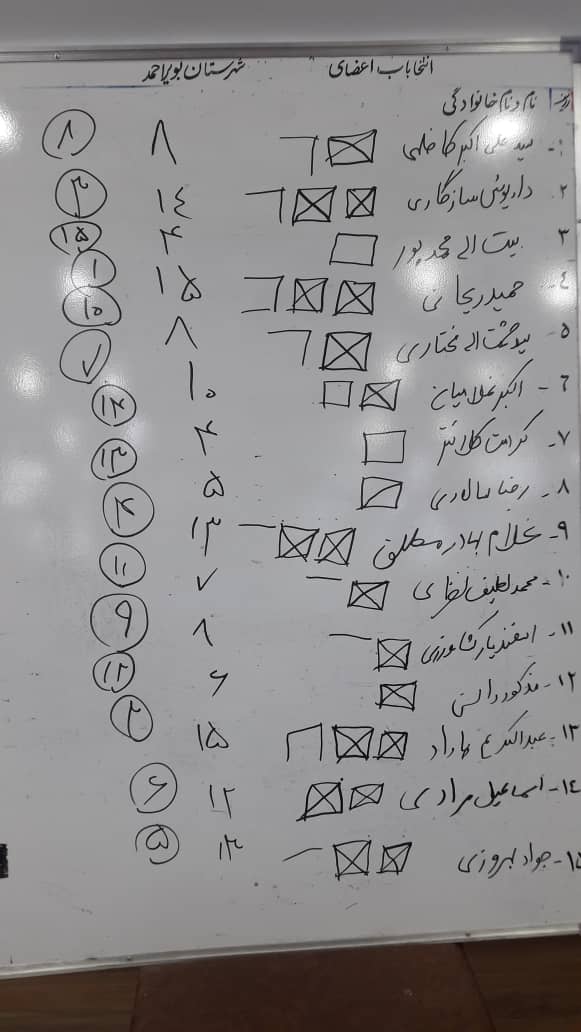 انتخاب اعضای شهرستان بویراحمد
ردیف نام و نام خانوادگی
۱- سید علی اکبر کاظمی ۸ ۸
۲- داریوش سازگاری ۱٤ ۳
۳ بیت اله محمدپور ۴ ۱۵
٤- حمید ریحانی ۱۵ ۱
۵- سید حشمت اله مختاری ۸ ۱۰
۶- اکبر غلامیان ۱۰ ۷
۷- کرامت کلانتر ۴ ۱۴
۸- رضا سالاری ۵ ۱۳
۹- غلام بهادر مطلق ۱۳ ۴
۱۰- محمد لطیف ۷ ۱۱
۱۱- اسفندیار کشاورزی ۸ ۹
۱۲- مذکور دانش ۶ ۱۲
۱۳- عبدالکریم بهزاد ۱۵ ۲
۱٤- اسماعیل مرادی ۱۲ ۶
۱۵- جواد بهروزی ۱۲ ۵